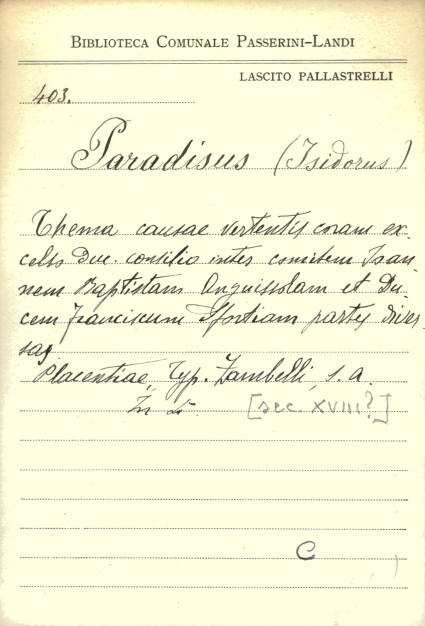 BIBLIOTECA COMUNALE PASSERINI-LANDI
LASCITO PALLASTRELLI
403.
Paradisus (Isidorus)
Thema causae vertentis coram ex-
celso Duc. consilio inter comitem Joan-
nem Baptistam Anguissolam et Du-
cem Franciscum Sfortiam partis diver-
sas
Placentiae, Typ. Zambelli, s. a.
In [sec. XVIII?]
C